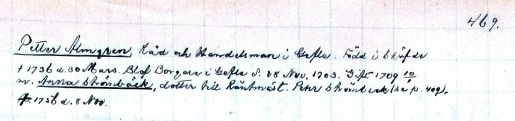 469.
Petter Almgren, Råd och Handelsman i Gefle. Född i
† 1756 d. 30 Mars. Blef Borgare i Gefle d. 28 Nov. 1703. Gift 1709
m. Anna Strömbäck, dotter till Räntmäst. Pehr Strömbeck (se p. 409).
1756 d. 8 Nov.